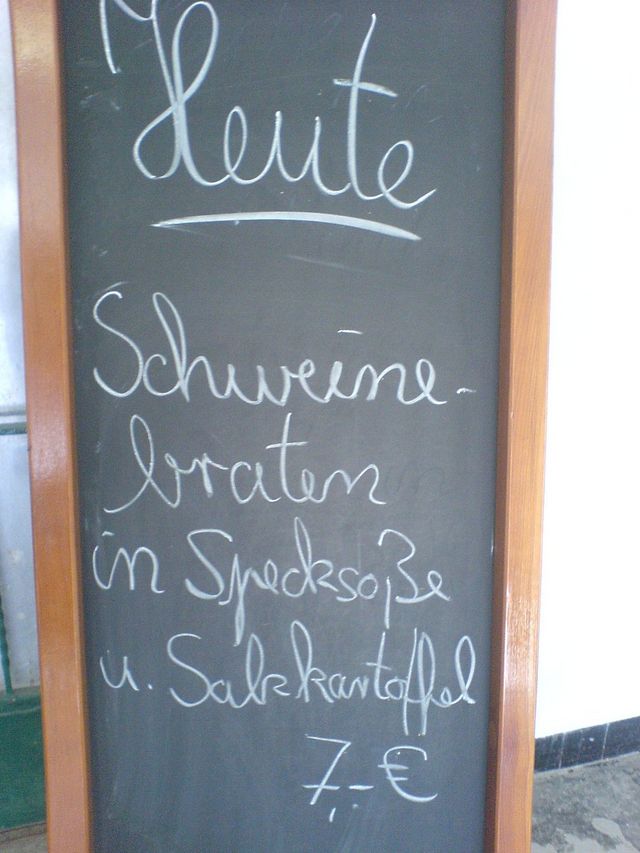 Heute
Schweine-
braten
in Specksoße
u. Salzkartoffel
7,- €